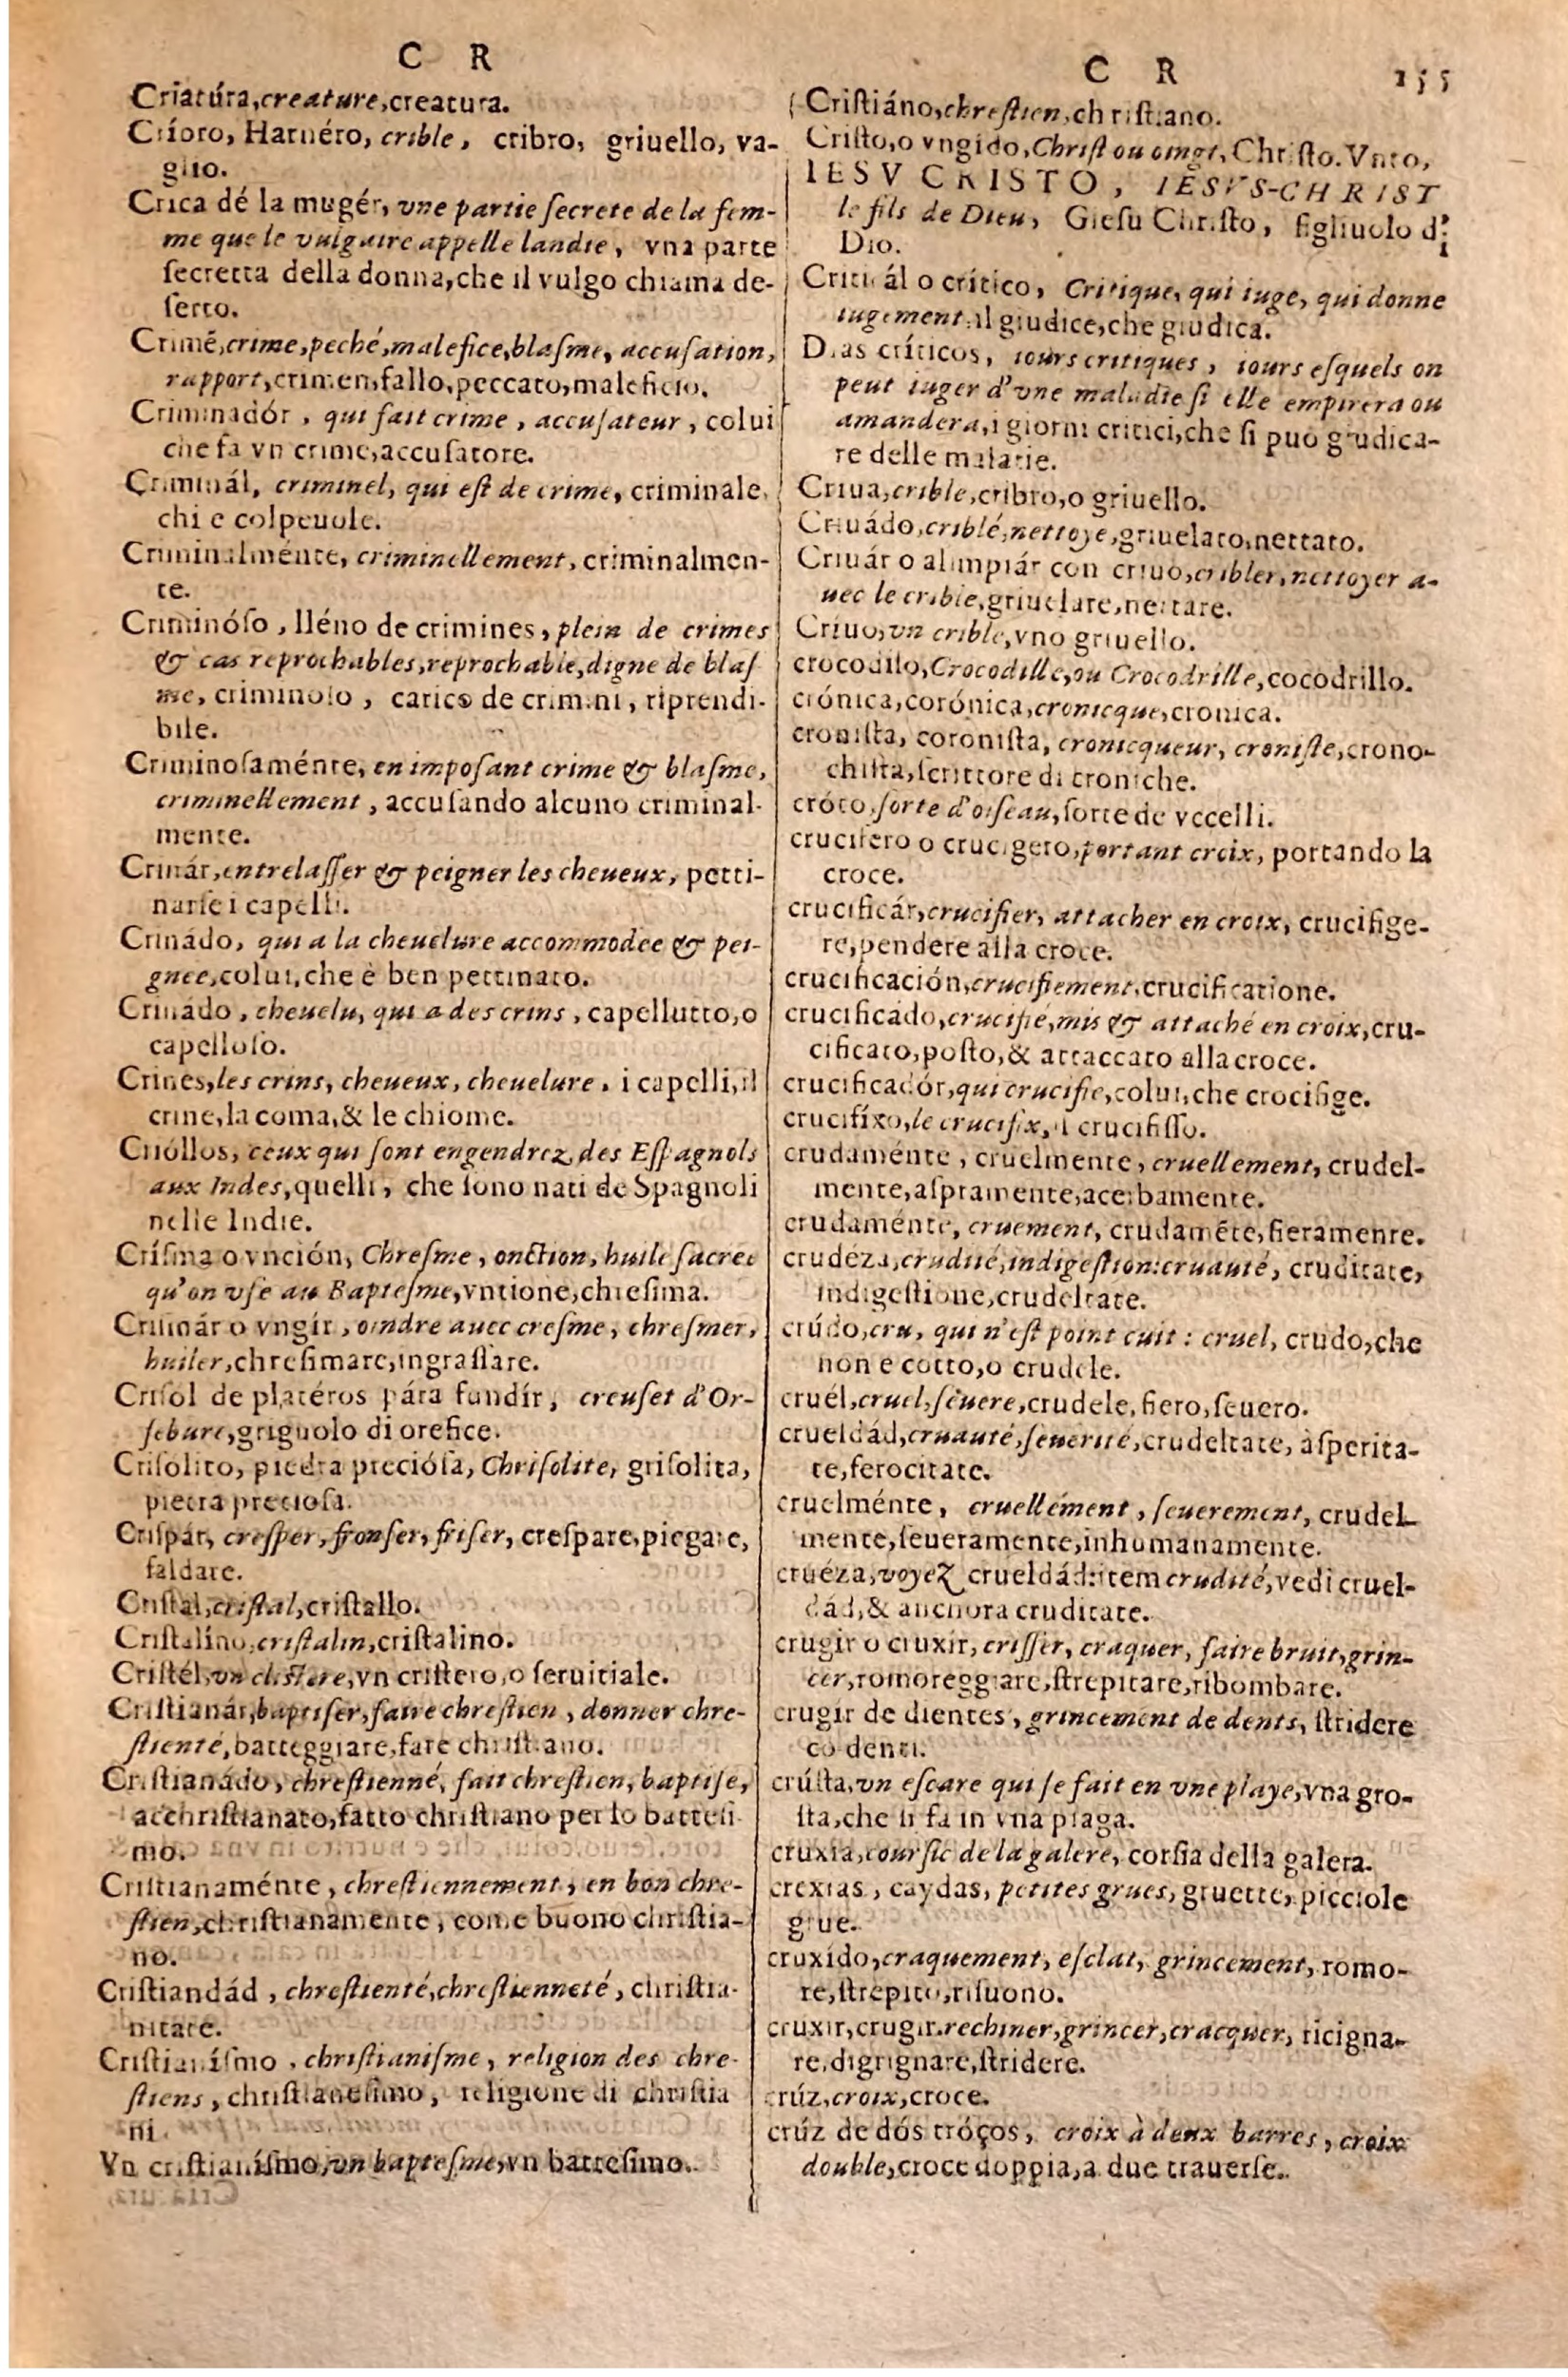 C R
Criatúra,creature,creatura.
Críbro, Harnéro, crible, cribro, griuello, va-
glio.
Crica dé la mugér, vne partie ſecrete de la fem-
me que le vulgaire appelle landie, vna parte
ſecretta della donna,che il vulgo chiama de-
ſerto.
Crimé,crime,peché,malefice,blaſme, accuſation,
rapport,crimen,fallo,peccato,maleficio.
Criminadór, qui fait crime, accuſateur, colui
che fa vn crime,accuſatore.
Criminál, criminel, qui eſt de crime, criminale,
chi e colpeuole.
Criminalménte, criminellement, criminalmen-
te.
Criminóſo, lléno de crimines, plein de crimes
& cas reprochables,reprochable,digne de blaſ
me, criminoſo, carico de crimini, riprendi-
bile.
Criminoſaménte, en impoſant crime & blaſme,
criminellement, accuſando alcuno criminal-
mente.
Crinár,entrelaſſer & peigner les cheueux, petti-
narſe i capelli.
Crinádo, qui a la cheuelure accommodee & pei-
gnee,colui,che è ben pettinato.
Crinádo, cheuelu, qui a des crins, capellutto,o
capelloſo.
Crines,les crins, cheueux, cheuelure, i capelli,il
crine,la coma,& le chiome.
Crióllos, ceux qui ſont engendrez des Eſpagnols
aux Indes,quelli, che ſono nati de Spagnoli
nelle Indie.
Críſma o vnción, Chreſme, onction, huile ſacree
qu'on vſe au Bapteſme,vntione,chreſima.
Criſmár o vngir, oindre auec creſme, chreſmer,
huiler,chreſimare,ingraſſare.
Criſol de platéros pára fundír, creuſet d'Or-
febure,griguolo di orefice.
Criſolito, piedra precióſa, Chriſolite, griſolita,
pietra pretioſa.
Criſpár, creſper, fronſer, friſer, creſpare,piegare,
faldare.
Criſtal,criſtal,criſtallo.
Criſtalíno,criſtalin,criſtalino.
Criſtél,vn cliſtere,vn criſtero,o ſeruitiale.
Criſtianár,baptiſer,faire chreſtien, donner chre-
ſtienté,batteggiare,fare chriſtiano.
Criſtianádo, chreſtienné, fait chreſtien, baptiſe,
acchriſtianato,fatto chriſtiano per lo batteſi
mo.
Criſtianaménte, chreſtiennement, en bon chre-
ſtien,chriſtianamente, come buono chriſtia-
no.
Criſtiandád, chreſtienté,chreſtienneté, chriſtia-
nitate.
Criſtianíſmo, chriſtianiſme, religion des chre-
ſtiens, chriſtianeſimo, religione di chriſtia
ni.
Vn criſtianíſmo,vn bapteſme,vn batteſimo.
C R 155
Criſtiáno,chreſtien,chriſtiano.
Criſto,o vngido,Chriſt ou oingt, Chriſto. Vnto,
IESV CRISTO, IESVS-CHRIST
le fils de Dieu, Gieſu Chriſto, figliuolo di
Dio.
Criticál o crítico, Critique, qui iuge, qui donne
iugement,il giudice,che giudica.
Dias críticos, iours critiques, iours eſquels on
peut iuger d'vne maladie ſi elle empirera ou
amandera,i giorni critici,che ſi puo giudica-
re delle malatie.
Criua,crible,cribro,o griuello.
Criuádo,criblé,nettoye,griuelato,nettato.
Criuár o alimpiár con criuo,cribler,nettoyer a-
uec le crible,griuelare,nettare.
Criuo,vn crible,vno griuello.
crocodilo,Crocodille,ou Crocodrille,cocodrillo.
crónica,corónica,cronicque,cronica.
croniſta, coroniſta, cronicqueur, croniſte,crono-
chiſta,ſcrittore di croniche.
cróto,ſorte d'oiſeau,ſorte de vccelli.
crucifero o crucigero,portant croix, portando la
croce.
crucificár,crucifier, attacher en croix, crucifige-
re,pendere alla croce.
crucificación,crucifiement,crucificatione.
crucificádo,crucifié,mis & attaché en croix,cru-
cificato,poſto,& attaccato alla croce.
crucificadór,qui crucifie,colui,che crocifige.
crucifíxo,le crucifix,il crucifiſſo.
crudaménte, cruelmente, cruellement, crudel-
mente,aſpramente,acerbamente.
crudaménte, cruement, crudaméte,fieramente.
crudéza,crudité,indigeſtion:cruauté, cruditate,
indigeſtione,crudeltate.
crúdo,cru, qui n'eſt point cuit: cruel, crudo,che
non e cotto,o crudele.
cruél,cruel,ſeuere,crudele,fiero,ſeuero.
crueldád,cruauté,ſeuerité,crudeltate, àſperita-
te,ferocitate.
cruelménte, cruellement, ſeuerement, crudel-
mente,ſeueramente,inhumanamente.
cruéza,voyez crueldád:item crudité,vedi cruel-
dád,& anchora cruditate.
crugir o cruxír, criſſer, craquer, faire bruit,grin-
cer,romoreggiare,ſtrepitare,ribombare.
crugír de dientes, grincement de dents, ſtridere
co denti.
crúſta,vn eſcare qui ſe fait en vne playe,vna gro-
ſta,che ſi fa in vna piaga.
cruxia,courſie de la galere, corſia della galera.
crexias, caydas, petites grues, gruette, picciole
grue.
cruxído,craquement, eſclat, grincement, romo-
re,ſtrepito,riſuono.
cruxír,crugir.rechiner,grincer,cracquer, ricigna-
re,digrignare,ſtridere.
crúz,croix,croce.
crúz de dós tróços, croix à deux barres, croix
double,croce doppia,a due trauerſe.